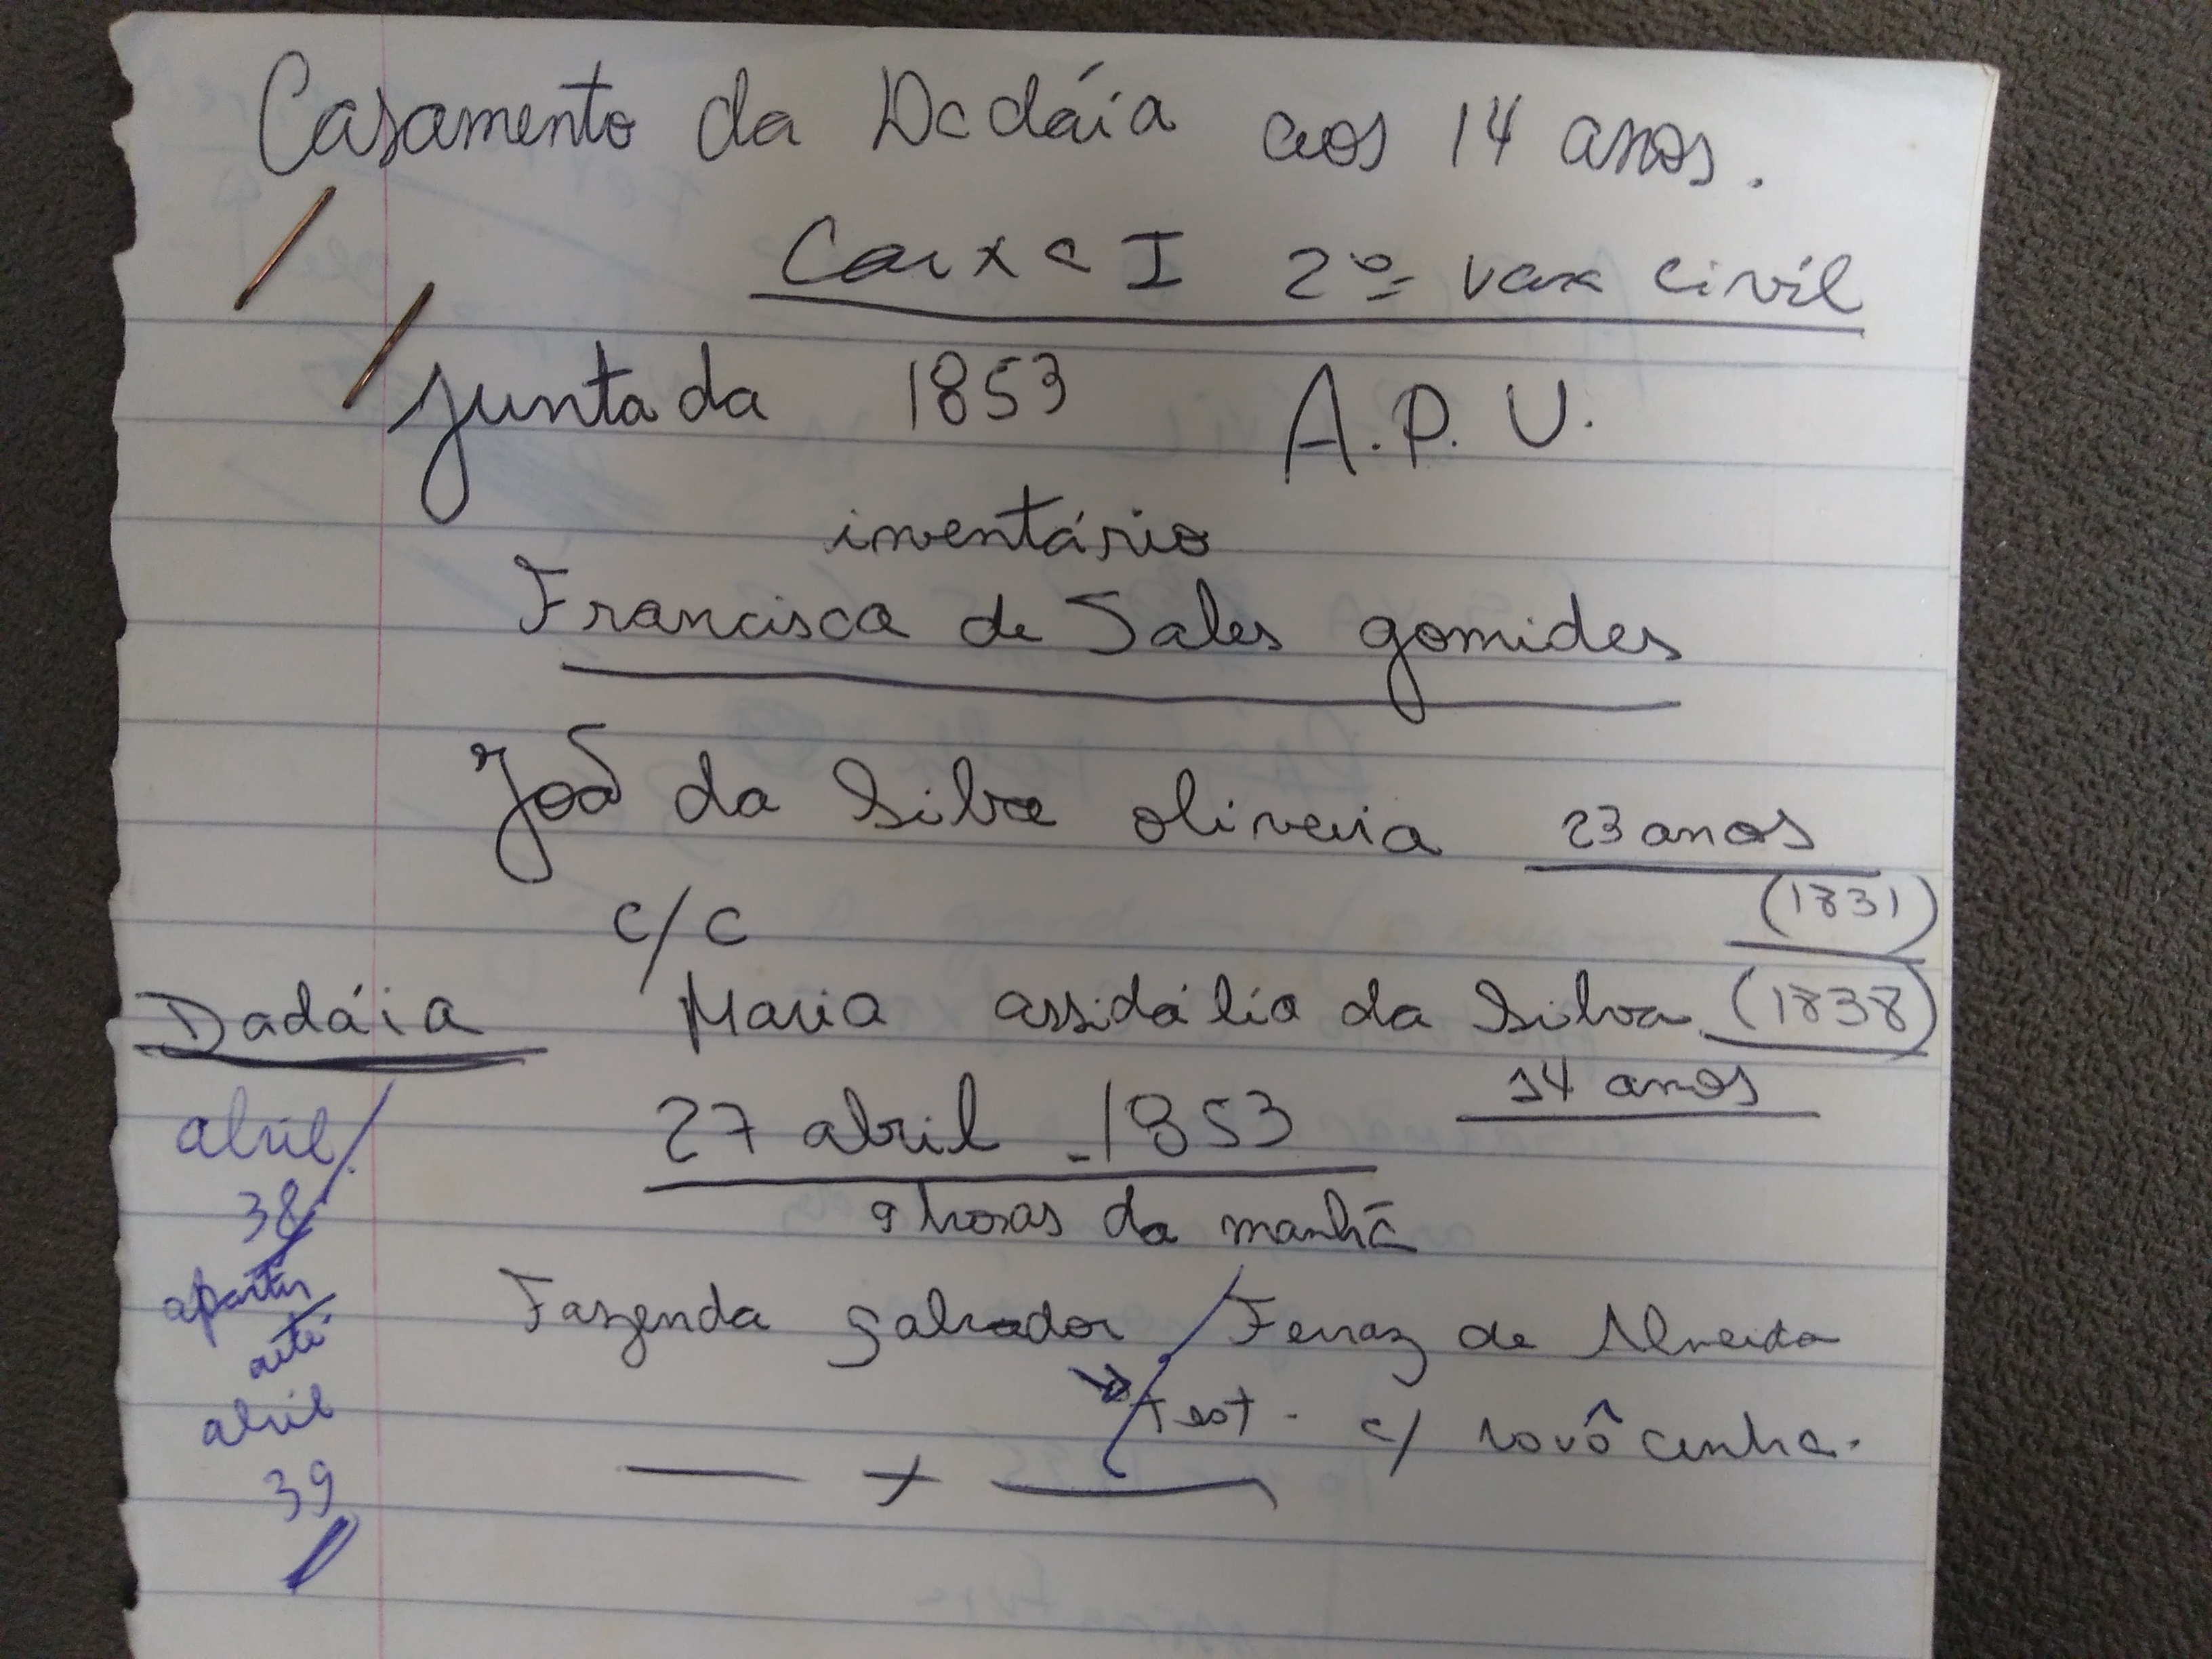 Casamento da Dadáia aos 14 anos.
Caixa I 2º vara civil
juntada 1853 A.P.U.
inventário
Francisca de Sales gomides
João da Silva oliveira 23 anos
(1831)
c/c
Dadáia Maria assidália da Silva (1838)
14 anos
27 abril - 1853
9 horas da manhã
Fazenda Salvador / Ferraz de Almeida
test - c/ vovô cunha.
abril
38
apartir
até
abril
39